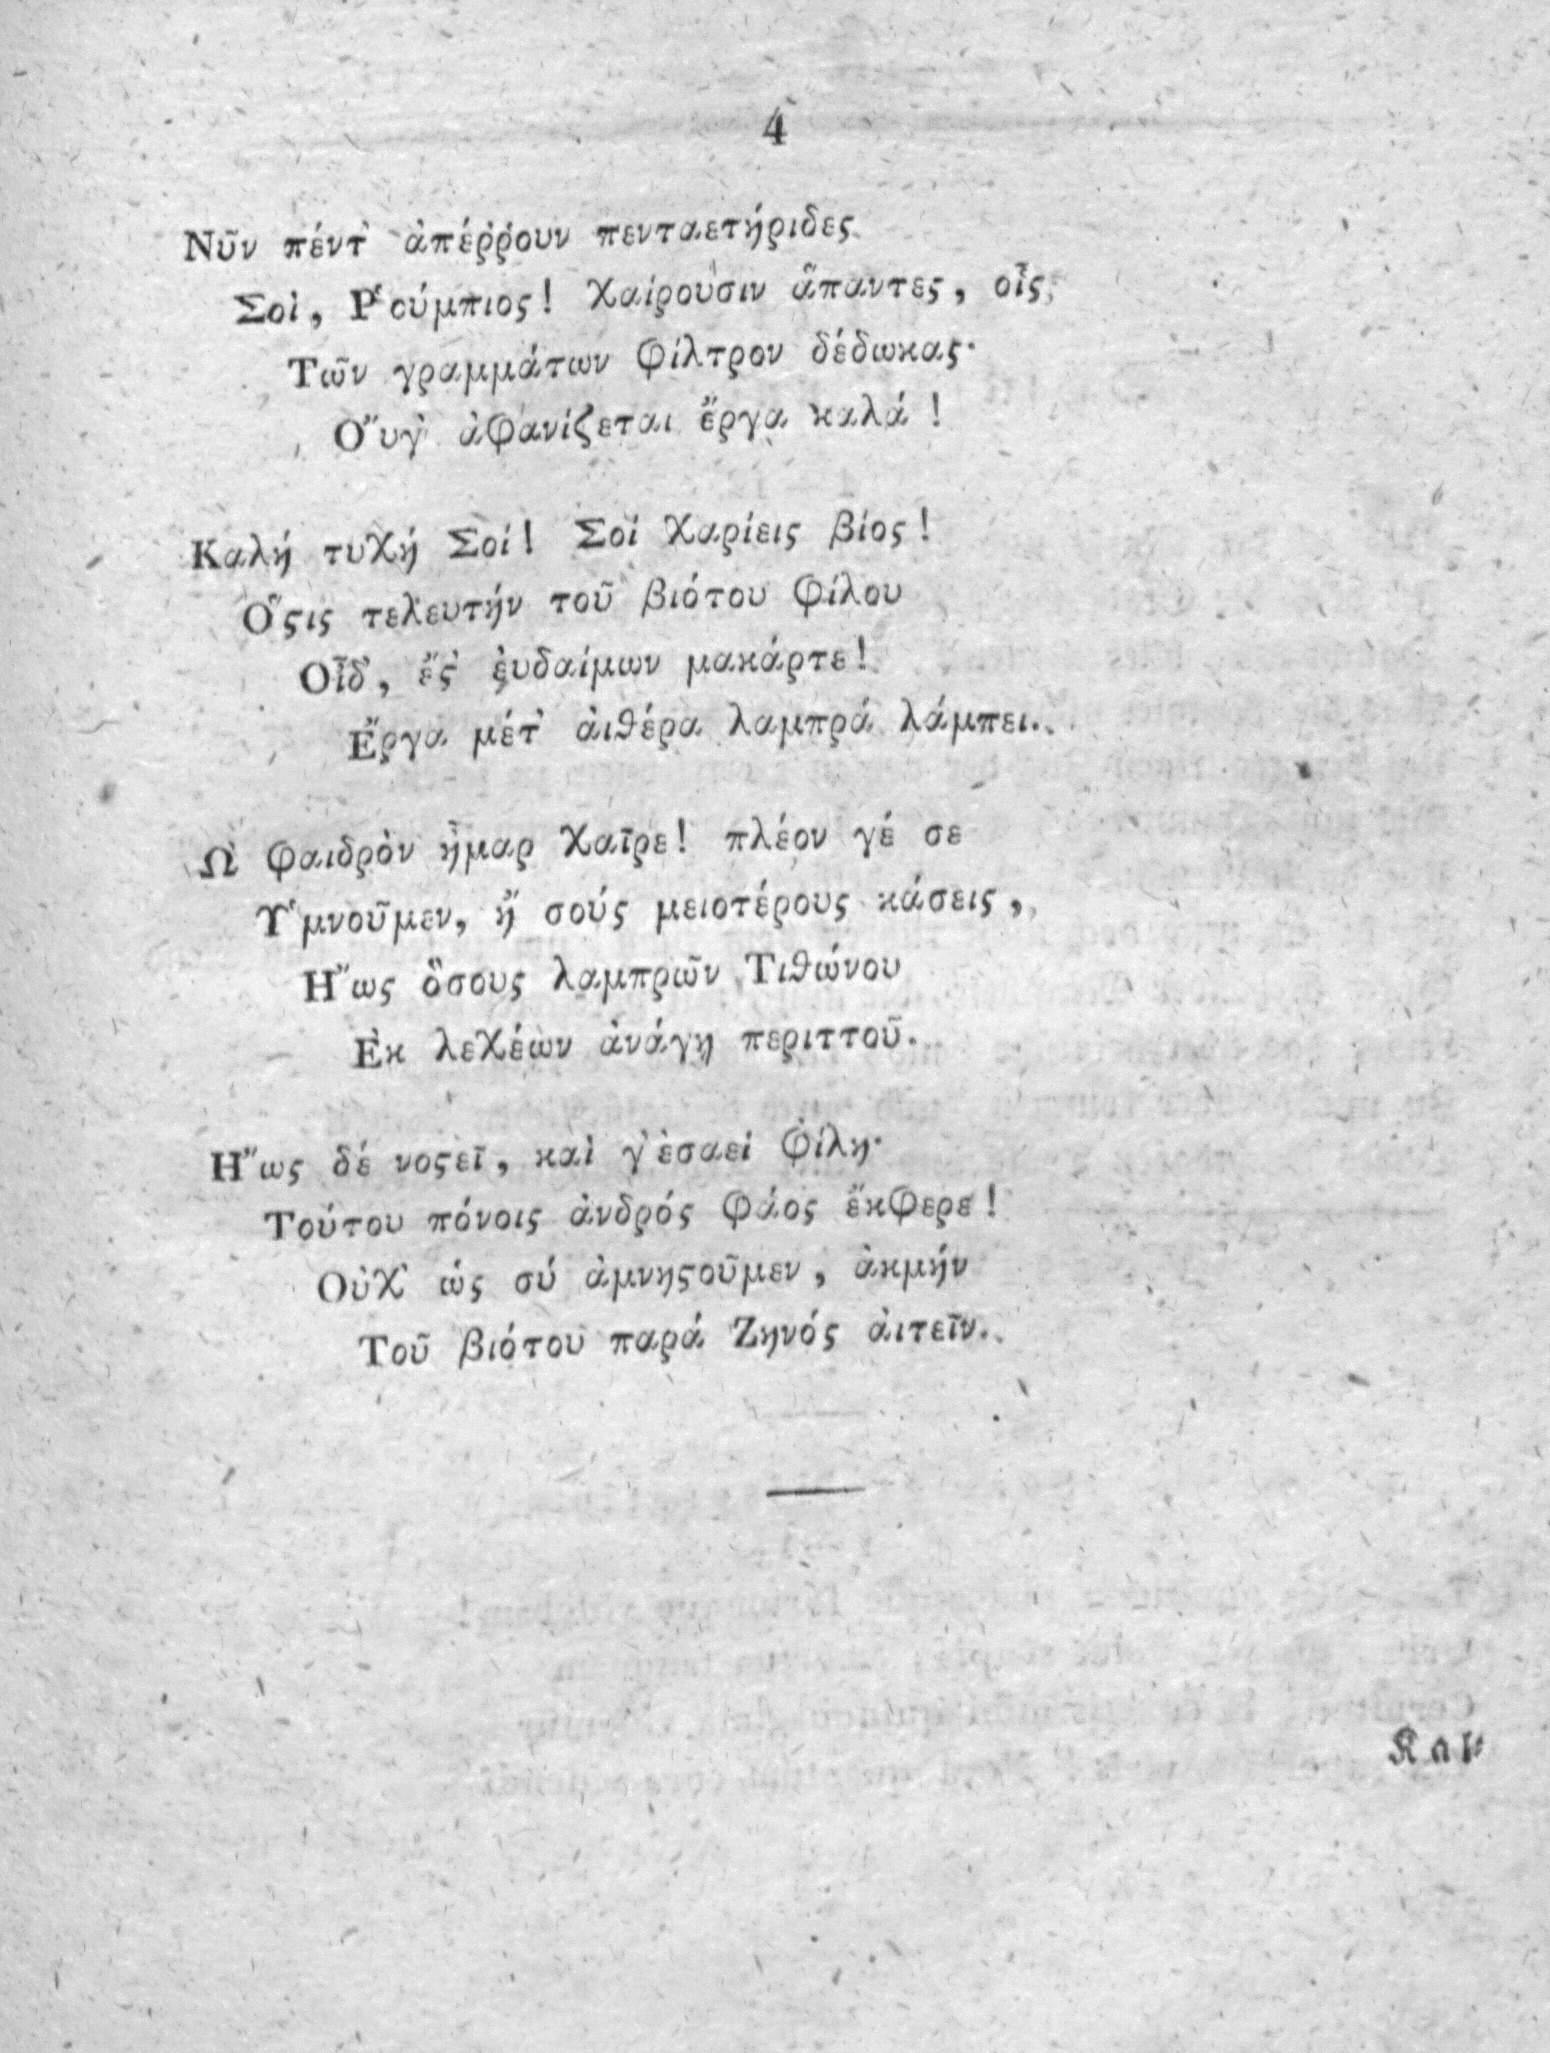 4
Νῦν πέντ᾽ ἀπέῤῥουν πενταετήριδες
Σοὶ, Ῥούμπιος! Χαίρουσιν ἅπαντες, οἷς
Τῶν γραμμάτων φίλτρον δέδωκας·
Οὔγ᾽ ἀφανίζεται ἔργα καλά!
Καλή τυχή Σοί! Σοί χαρίεις βίος!
Ὅϛις τελευτήν τοῦ βιότου φίλου
Οἶδ᾽, ἔϛ᾽ ἐυδαίμων μακάρτε!
Ἔργα μέτ᾽ ἀιθέρα λαμπρά λάμπει.
Ὠ φαιδρὸν ἦμαρ χαῖρε! πλέον γέ σε
Ὑμνοῦμεν, ἤ σούς μειοτέρους κάσεις,
Ἤως ὅσους λαμπρῶν Τιθώνου
Ἐκ λεχέων ἀνάγη περιττοῦ.
Ἤως δέ νοϛεῖ, καὶ γ᾽ἐσαεί φίλη·
Τούτου πόνοις ἀνδρός φάος ἔκφερε!
Οὐχ᾽ ὡς σύ ἀμνηϛοῦμεν, ἀκμήν
Τοῦ βιότου παρά Ζηνός ἀιτεῖν.